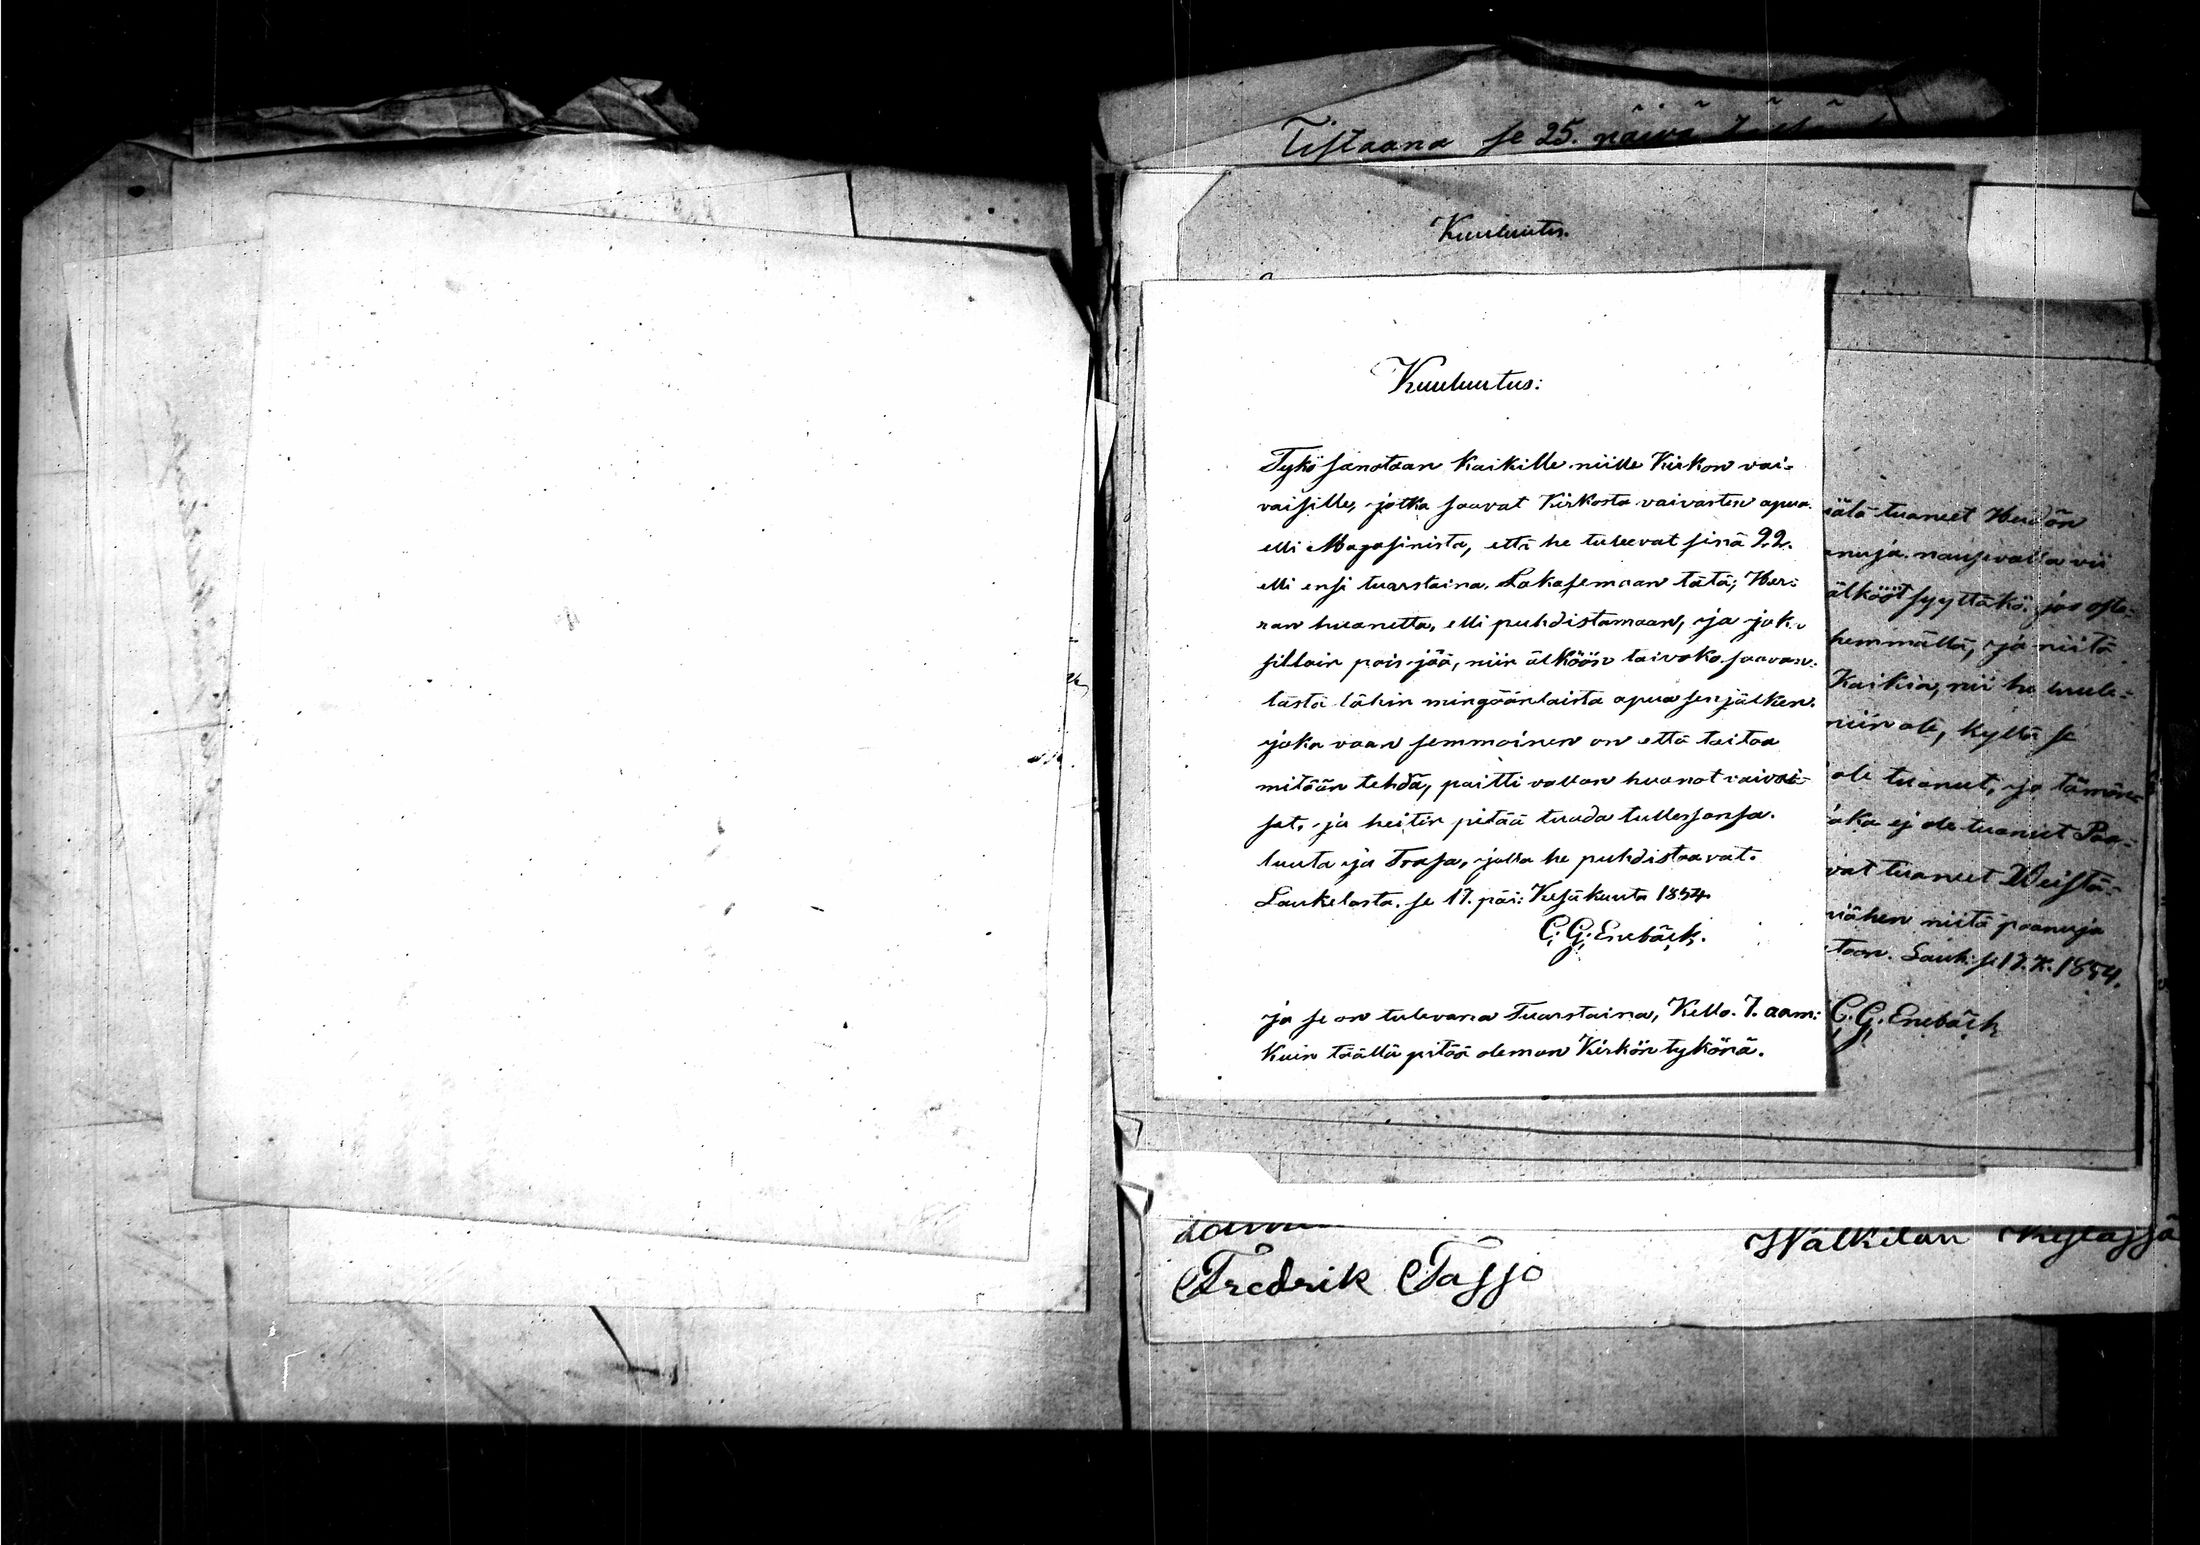 Tistaana se 25. päivä
Kuuluutus.
Kuuluutus:
Tykö sanotaan Kaikille niille Kirkon vai-
vaisille, jotka saavat Kirkosta vaivasten apua
elli Magasinista, että he tuleevat sinä 22.
elli ensi tuarstaina. Lakasemaan tätä; Her-
ran huanetta, elli puhdistamaan, ja jok.
silloin pois jää, niin älköön toivoko saavan.
tästä lähin mingäänlaista apua sen jälken.
joka vaan semmoinen on että taitaa
mitään tehdä, paitti vallan huanot vaivai-
sat. ja heitin pitää tuada tullessansa.
luuta ja Trasa, jolla he puhdistaavat.
Laukelasta. se 17. päi: Kesäkuuta 1854
C. G. Enebäck.
ja se on tulevana Tuarstaina, Kello. 7. aam:
Kuin täällä pitää oleman Kirkön tykönä.
tuaneet
älkööt syyttäkö. jos
hemmällä, ja niitä
Kaikia, nii he luule-
niin ole, kyllä se
ole tuanut, ja tämän
ej ole tuanut
vat tuaneet
niitä paanuja
Lauk: se 17. K. 1854.
C. G. Enebäck
Fredrik Tasso
Wälkilan Kylassä